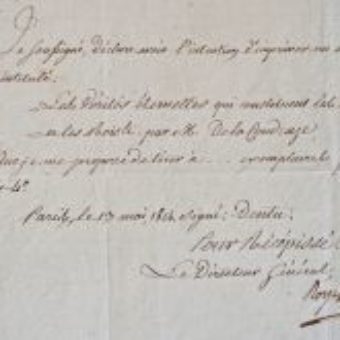 Je soussigné, déclare avoir l'intention d'imprimer un o
intitulé:
Les Vérités éternelles qui
par M. De la
que je me propose de tirer à ... exemplaires
Paris, le 13 mai signé: Dentu.
Pour Récépissé
Le Directeur Général,